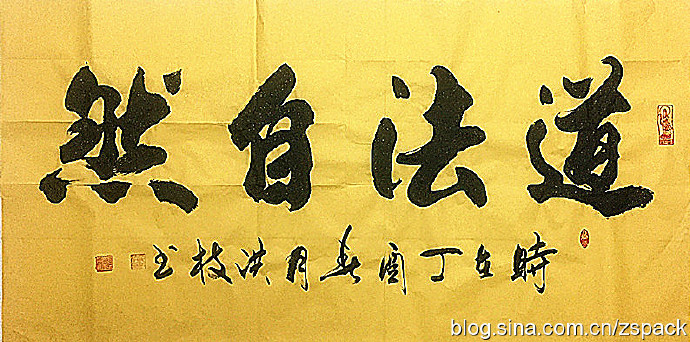 道法自然
時在丁酉春月洪枝书
blog.sina.com.cn/zspack